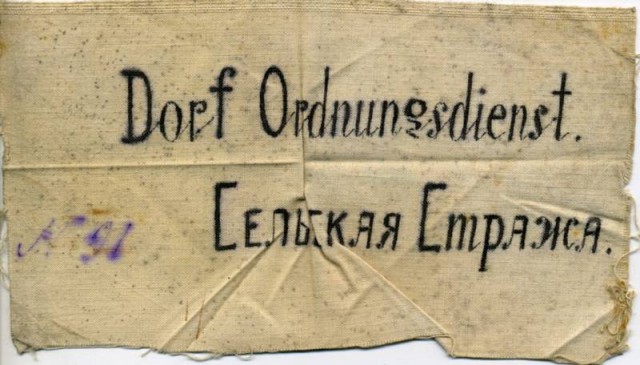 Dorf Ordnungsdienst.
Сельская Стража.
№ 91